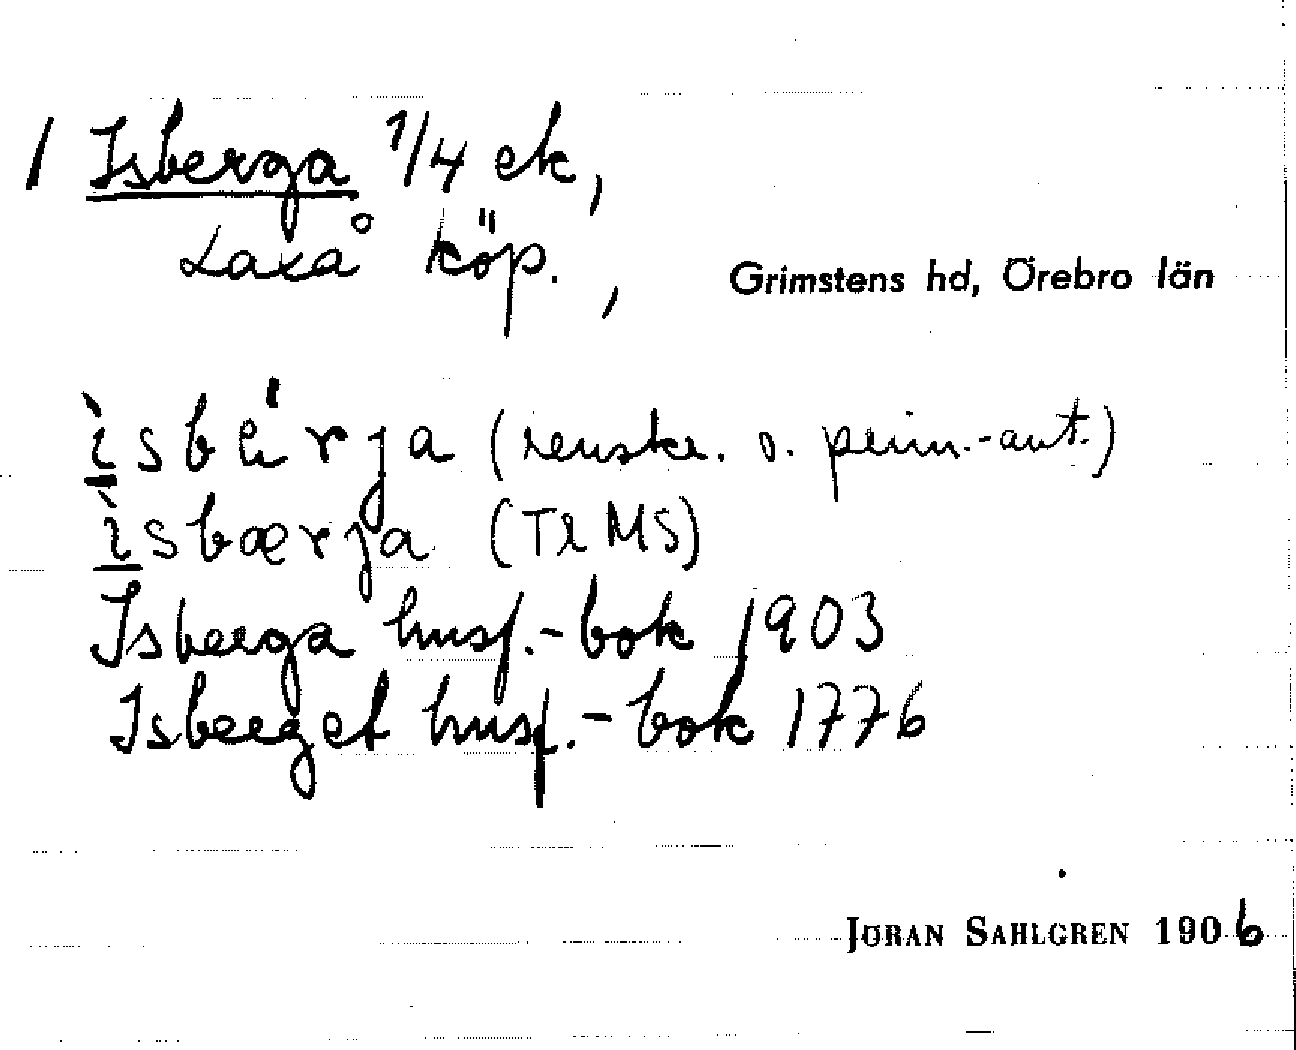 / Isberga 1/4 ek,
Laxå köp.,
Grimstens hd, Örebro län
ìsbä́rja (renskr. o. prim.-ant.)
ìsbærja (Tl MS)
Isberga husf.-bok 1903
Isberget husf.-bok 1776
JÖRAN SAHLGREN 1906